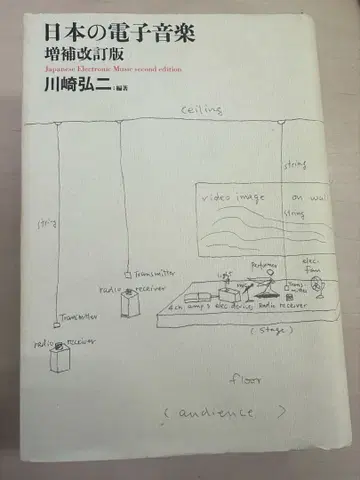 日本の電子音楽
増補改訂版
Japanese Electronic Music second edition
川崎弘二 編著
ceiling
string
string
video image on wall
string
Transmitter
radio receiver
light
performer
mic
Transmitter
elec. fan
4ch. amp's elec. devices Radio receiver
(stage)
Transmitter
radio receiver
floor
(audience)